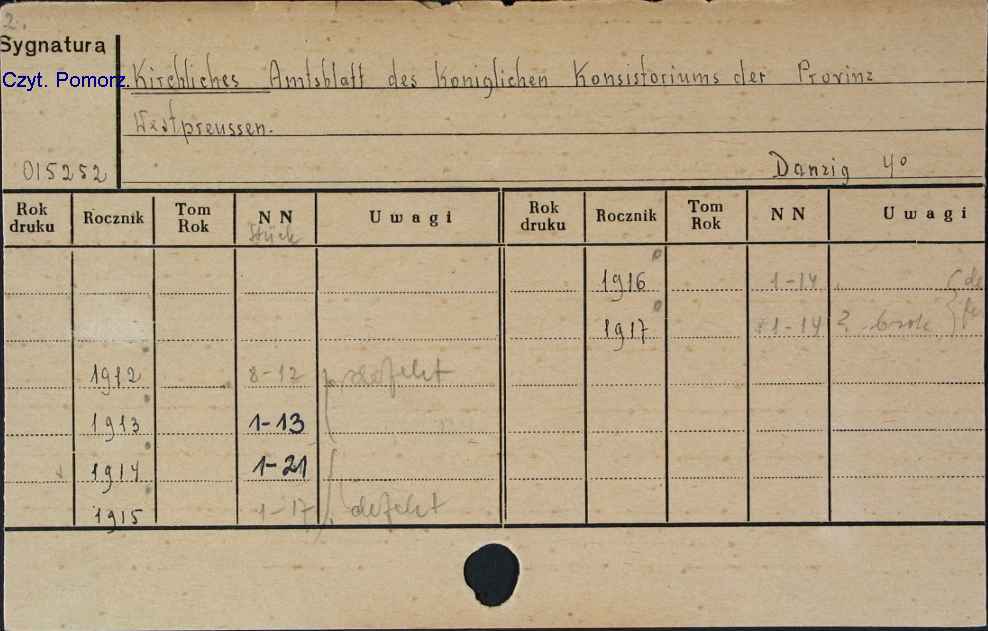 2.
Sygnatura
Czyt. Pomorz.
Kirchliches Amtsblatt des Königlichen Konsistoriums der Provinz
Westpreussen.
015252
Danzig 4°
Rok druku Rocznik Tom Rok NN Uwagi Rok druku Rocznik Tom Rok NN Uwagi
Stück
1916 1-14
1917 1-14 2 brak
1912 8-12 defekt
1913 1-13
1914 1-21
1915 1-17 defekt